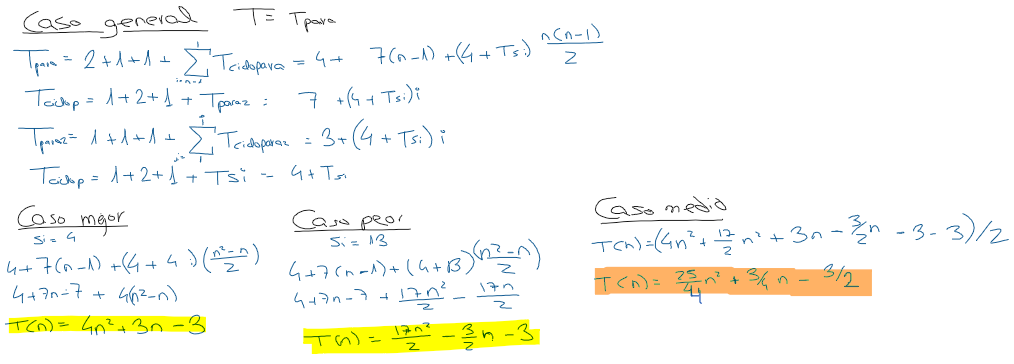 Caso general T = Tpara
Tpara = 2+1+1+ ∑ 1 i=n-1 Tciclopara = 4+ 7(n-1) +(4+Tsi) n(n-1)/2
Tciclop = 1+2+1 + Tpara2 = 7 +(4+Tsi)i
Tpara2 = 1+1+1+ ∑ i j=1 Tciclopara2 = 3+(4+Tsi)i
Tciclop = 1+2+1 + Tsi = 4+Tsi
Caso mejor
Si = 4
4+7(n-1) +(4+4)(n²-n/2)
4+7n-7 + 4(n²-n)
T(n) = 4n²+3n-3
Caso peor
Si = 13
4+7(n-1)+(4+13)(n²-n/2)
4+7n-7 + 17n²/2 - 17n/2
T(n) = 17n²/2 - 3/2 n - 3
Caso medio
T(n)=(4n²+ 17/2 n² + 3n - 3/2 n - 3 - 3)/2
T(n) = 25/4 n² + 3/4 n - 3/2